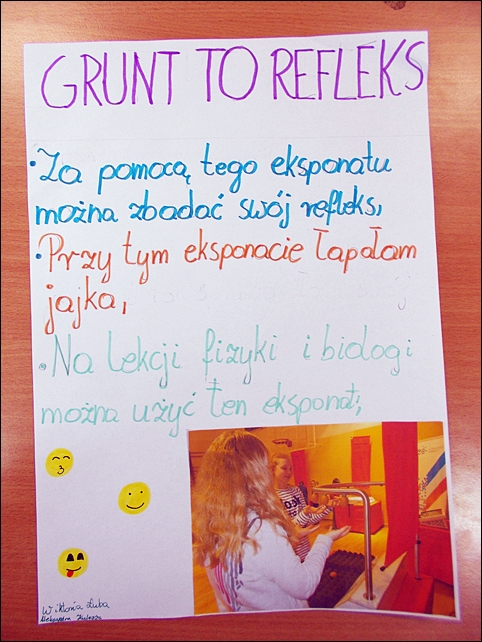 GRUNT TO REFLEKS
• Za pomocą tego eksponatu
można zbadać swój refleks,
• Przy tym eksponacie łapałam
jajka,
• Na lekcji fizyki i biologi
można użyć ten eksponat;
Wiktoria Luba